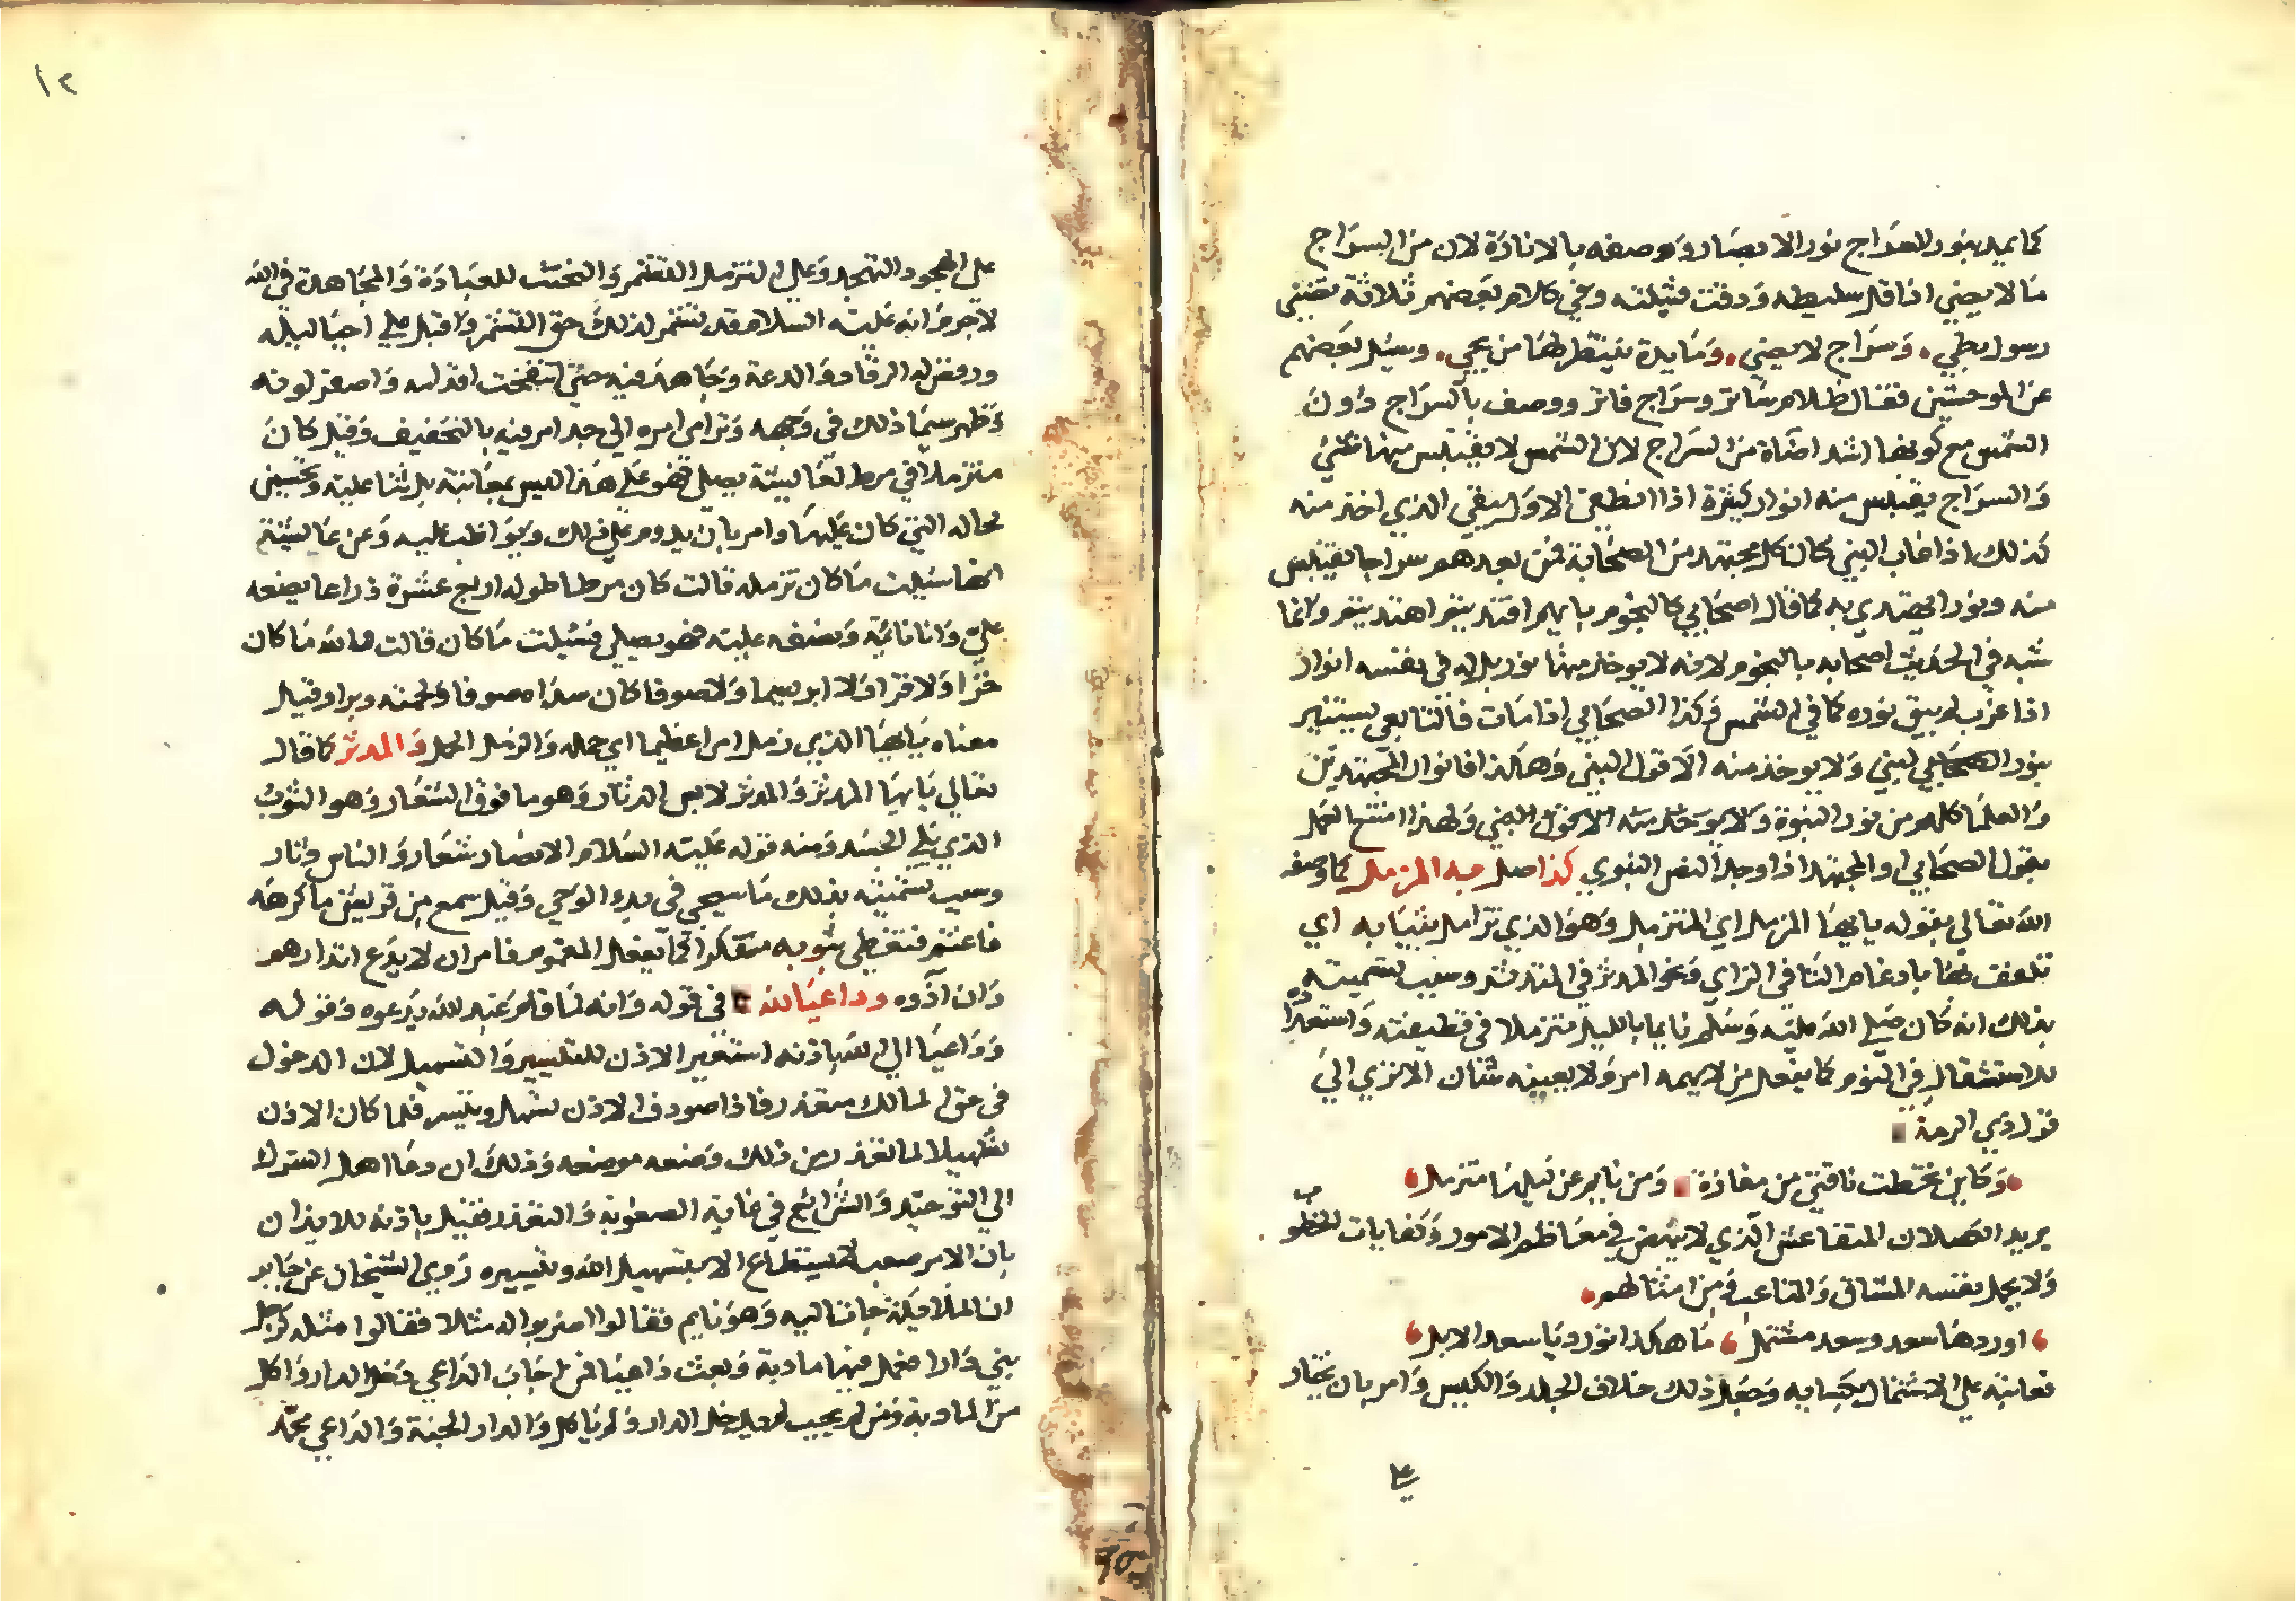 كما يمد بنور السراج نور الابصار ووصفه بالانارة لان من السراج
ما لا يضي اذا قل سليطه ودقت فتيلته وفي كلام بعضهم ثلاثة تضني
رسول بطي وسراج لا يضي ومايدة ينتظر لها من يجي وسيل بعضهم
عن الموحشين فقال ظلام ساتر وسراج فاتر ووصف بالسراج دون
الشمس مع كونها اشد اضاة من السراج لان الشمس لا يقتبس منها شي
والسراج يقتبس منه انوار كثيرة اذا انطفى الاول يبقي الذي اخذ منه
كذلك اذا غاب النبي كان كل مجتهد من الصحابة فمن بعدهم سراجا يقتبس
منه ونورا يهتدي به كما قال اصحابي كالنجوم بايهم اقتديتم اهتديتم وانما
شبه في الحديث اصحابه بالنجوم لانه لا يوخذ منها نور بل له في نفسه انوار
اذا غرب لم يبق نوره كما في الشمس وكذا الصحابي اذا مات فالتابعي يستنير
بنور الصحابي لنبي ولا يوخذ منه الا قول النبي وهكذا فانوار المجتهدين
والعلما كلهم من نور النبوة ولا يوخذ منه الا قول النبي ولهذا امتنع العمل
بقول الصحابي او المجتهد اذا وجد النص النبوي كذا صلى عبد المزمل كما وصفه
الله تعالى بقوله يا ايها المزمل اي المتزمل وهو الذي تزامل بثيابه اي
تلفف بها بادغام التا في الزاي ونحو المدثر في المتدثر وسبب تسميته
بذلك انه كان صلي الله عليه وسلم نايما بالليل متزملا في قطيفته واستعداده
للاستثقال في النوم كما يفعل من لا يهمه امر ولا يعينه شان الا تري الي
قول ذي الرمة
وكاين تخطت ناقتي من مفازة ومن نايم عن ليلها متزمل
يريد الكسلان المتقاعس الذي لا ينهض في معاظم الامور وكفايات الخطوب
ولا يحمل نفسه المشاق والمتاعب ومن امثالهم
اوردها سعد وسعد مشتمل ما هكذا تورد يا سعد الابل
فعاتبه علي الاشتمال بكسايه وجعل ذلك خلاف الجلد والكيس وامر بان يختار
علي
١٢
على الهجود التهجد وعلى التزمل التشمر والتخشن للعبادة والمجاهدة في الله
لا جرم انه عليه السلام قد تشمر لذلك حق التشمر واقبل علي احيا ليله
ورفض له الرقاد والدعة وجاهد فيه حتى انتفخت اقدامه واصفر لونه
وظهر سيما ذلك في وجهه وترامى امره الي حد امر فيه بالتخفيف وقيل كان
متزملا في مرط لعايشة يصلي فهو على هذا ليس بمعاتبة بل ثنا عليه وتحسين
لحاله التي كان عليها وامر بان يدوم على ذلك ويواظب عليه وعن عايشة
انها سئلت ما كان تزمله قالت كان مرطا طوله اربع عشرة ذراعا نصفه
علي وانا نائمة ونصفه عليه فهو يصلي فسئلت ما كان قالت والله ما كان
خزا ولا قزا ولا ابريسما ولا صوفا كان سداه صوفا ولحمته وبرا وقيل
معناه يا ايها الذي زمل امرا عظيما اي حمله والزمل الحمل والمدثر كما قال
تعالي يا ايها المدثر والمدثر لابس الدثار وهو ما فوق الشعار وهو الثوب
الذي يلي الجسد ومنه قوله عليه السلام الانصار شعار والناس دثار
وسبب تسميته بذلك ما سيجي في بدء الوحي وقيل سمع من قريش ما كرهه
فاغتم فتغطى بثوبه متفكرا كما يفعل المغموم فامر ان لا يدع انذارهم
وان اذوه وداعيا لله في قوله وانه لما قام عبد الله يدعوه وقوله
وداعيا الى الله باذنه استعير الاذن للتيسير والتسهيل لان الدخول
في حق المالك متعذر فاذا صودف الاذن تسهل وتيسر فلما كان الاذن
تسهيلا لما تعذر من ذلك وضعه موضعه وذلك ان دعا اهل الشرك
الي التوحيد والشرائع في غاية الصعوبة والتعذر فقيل باذنه للايذان
بان الامر صعب لا يستطاع الا بتسهيل الله وتيسيره روى الشيخان عن جابر
ان الملايكة جات اليه وهو نايم فقالوا اضربوا له مثلا فقالوا مثله كرجل
بني دارا فعمل فيها مادبة وبعث داعيا فمن اجاب الداعي دخل الدار واكل
من المادبة ومن لم يجيب لم يدخل الدار ولم ياكل والدار الجنة والداعي محمد